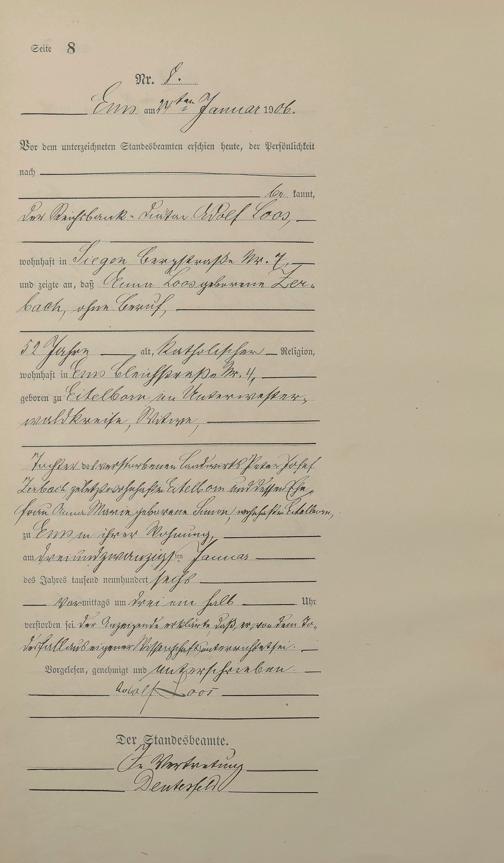 Seite 8
Nr. 8.
Ems am 24ten Januar 1906.
Vor dem unterzeichneten Standesbeamten erschien heute, der Persönlichkeit
nach
be kannt,
der Reichsbank- Adolf Loos,
wohnhaft in Siegen Bergstraße Nr. 7,
und zeigte an, daß Anna Loos geborene Zer-
bach, ohne Beruf,
52 Jahre alt, katholischer Religion,
wohnhaft in Ems Bleichstraße Nr. 4,
geboren zu Eitelborn im Unterwester-
waldkreise, Witwe,
Tochter des verstorbenen Landwirts Peter Josef
Zerbach, zuletzt wohnhaft in Eitelborn und dessen Ehe-
frau Anna Maria geborene Simon, wohnhaft in Eitelborn,
zu Ems in ihrer Wohnung,
am dreiundzwanzigsten Januar
des Jahres tausend neunhundert sechs
Vormittags um drei ein halb Uhr
verstorben sei. Der Anzeigende erklärte daß er von dem To-
desfall aus eigener Wissenschaft unterrichtet sei.
Vorgelesen, genehmigt und unterschrieben
Adolf Loos
Der Standesbeamte.
In Vertretung